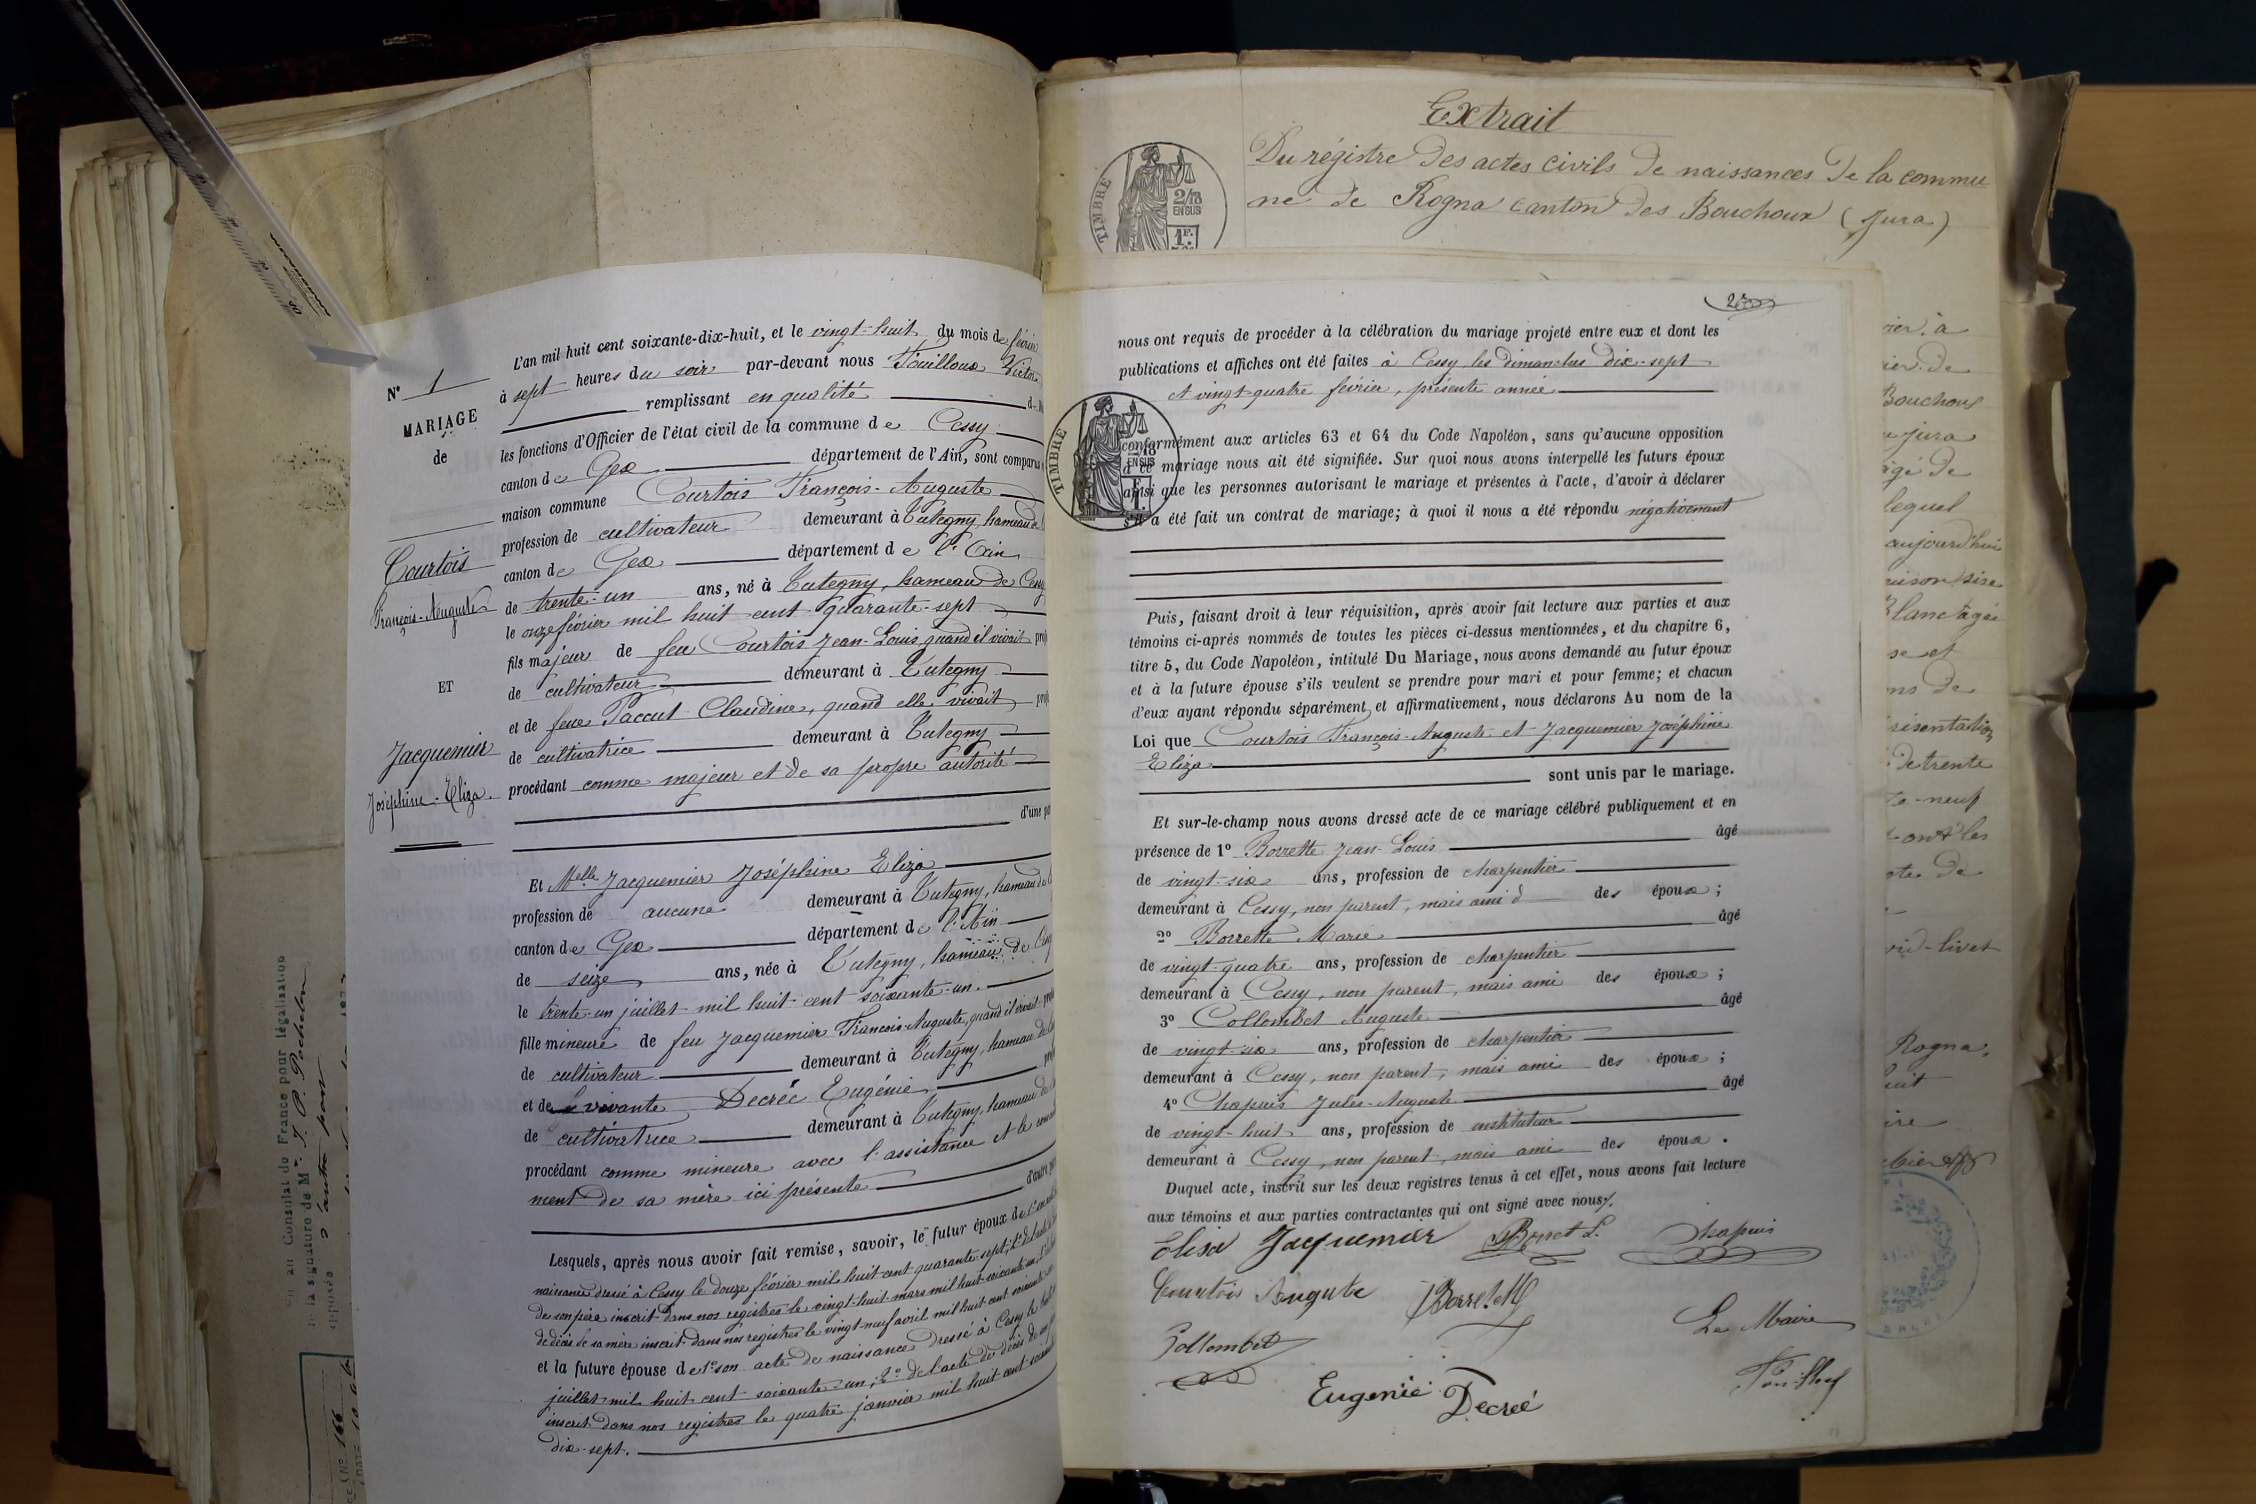 Extrait
Du régistre des actes civils de naissances de la commu
ne de Rogna canton des Bouchoux (Jura)
TIMBRE
2/10
EN SUS
1F.
N° 1
MARIAGE
de
Courtois
François-Auguste
ET
Jacquemier
Joséphine-Eliza.
L'an mil huit cent soixante-dix-huit, et le vingt-huit du mois de février
à sept heures du soir par-devant nous Fouilloux Victor
remplissant en qualité d
les fonctions d'Officier de l'état civil de la commune de Cessy
canton de Gex département de l'Ain, sont comparus
maison commune Courtois François-Auguste
profession de cultivateur demeurant à Tutegny, hameau de
canton de Gex département de l'Ain
de trente-un ans, né à Tutegny, hameau de Cessy
le onze février mil huit cent quarante-sept
fils majeur de feu Courtois Jean-Louis, quand il vivait
de cultivateur demeurant à Tutegny
et de feue Paccut Claudine, quand elle vivait
de cultivatrice demeurant à Tutegny
procédant comme majeur et de sa propre autorité
d'une
Et Melle Jacquemier Joséphine Eliza
profession de aucune demeurant à Tutegny, hameau de
canton de Gex département de l'Ain
de seize ans, née à Tutegny, hameau de
le trente-un juillet mil huit cent soixante-un.
fille mineure de feu Jacquemier François-Auguste, quand il vivait
de cultivateur demeurant à Tutegny, hameau de
et de vivante Decréé Eugénie
de cultivatrice demeurant à Tutegny, hameau de
procédant comme mineure avec l'assistance et le
ment de sa mère ici présente
Lesquels, après nous avoir fait remise, savoir, le futur époux de
naissance dressé à Cessy le douze février mil huit cent quarante-sept;
de son père inscrit dans nos registres le vingt-huit mars mil huit cent
de décès de sa mère inscrit dans nos registres le vingt-neuf avril mil huit cent
et la future épouse de 1° son acte de naissance dressé à Cessy le
juillet mil huit cent soixante-un; 2° de l'acte de décès de
inscrit dans nos registres le quatre janvier mil huit cent
dix-sept.
nous ont requis de procéder à la célébration du mariage projeté entre eux et dont les
publications et affiches ont été faites à Cessy les dimanches dix-sept
et vingt-quatre février, présente année
TIMBRE
EN SUS
conformément aux articles 63 et 64 du Code Napoléon, sans qu'aucune opposition
à ce mariage nous ait été signifiée. Sur quoi nous avons interpellé les futurs époux
ainsi que les personnes autorisant le mariage et présentes à l'acte, d'avoir à déclarer
s'il a été fait un contrat de mariage; à quoi il nous a été répondu négativement
Puis, faisant droit à leur réquisition, après avoir fait lecture aux parties et aux
témoins ci-après nommés de toutes les pièces ci-dessus mentionnées, et du chapitre 6,
titre 5, du Code Napoléon, intitulé Du Mariage, nous avons demandé au futur époux
et à la future épouse s'ils veulent se prendre pour mari et pour femme; et chacun
d'eux ayant répondu séparément et affirmativement, nous déclarons Au nom de la
Loi que Courtois François-Auguste et Jacquemier Joséphine
Eliza
sont unis par le mariage.
Et sur-le-champ nous avons dressé acte de ce mariage célébré publiquement et en
présence de 1° Borrette Jean-Louis âgé
de vingt-six ans, profession de charpentier
demeurant à Cessy, non parent, mais ami d des époux;
2° Borrette Marie âgé
de vingt-quatre ans, profession de charpentier
demeurant à Cessy, non parent, mais ami des époux;
3° Collombet Auguste âgé
de vingt-six ans, profession de charpentier
demeurant à Cessy, non parent, mais ami des époux;
4° Chapuis Jules-Auguste âgé
de vingt-huit ans, profession de instituteur
demeurant à Cessy, non parent, mais ami des époux.
Duquel acte, inscrit sur les deux registres tenus à cet effet, nous avons fait lecture
aux témoins et aux parties contractantes qui ont signé avec nous.
Elisa Jacquemier Borret L. Chapuis
Courtois Auguste
Collombet
Le Maire
Eugenie Decréé
Bouchoux
Jura
âgé de
lequel
aujourd'hui
se et
ns de
de trente
Rogna,
au Consulat de France pour légalisation
de la signature de Mr.
N° 166